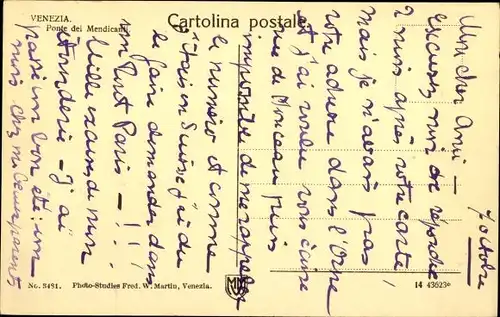 VENEZIA.
Ponte dei Mendicanti
Cartolina postale
7 octobre
Mon cher Ami —
Excusez moi de répondre
2 mois après votre carte,
mais je n'avais pas
votre adresse dans l'Orne
et j'ai voulu vous écrire
rue de Monceau puis
impossible de me rappeler
le numéro et comme
j'étais en Suisse j'ai dû
le faire demander dans
un Tout Paris — !!
Mille excuses de mon
étourderie — J'ai
passé un bon été : un
mois chez mes beaux parents
No. 3481. Photo-Studies Fred. W. Martin, Venezia.
14 43623